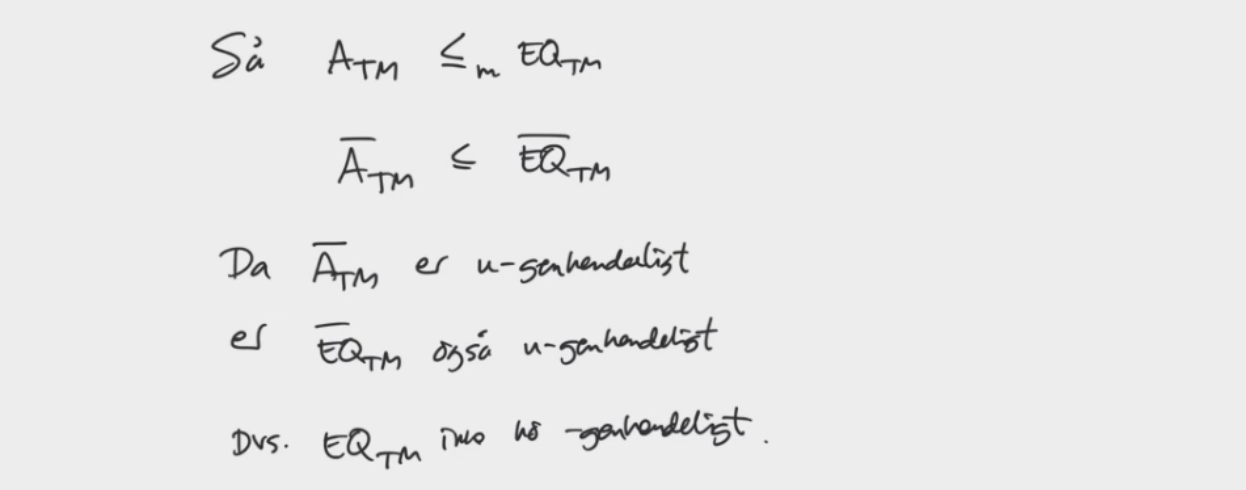 Så A_TM ≤_m EQ_TM
A̅_TM ≤ E̅Q̅_TM
Da A̅_TM er u-genkendeligt
er E̅Q_TM også u-genkendeligt
Dvs. EQ_TM -genkendeligt.